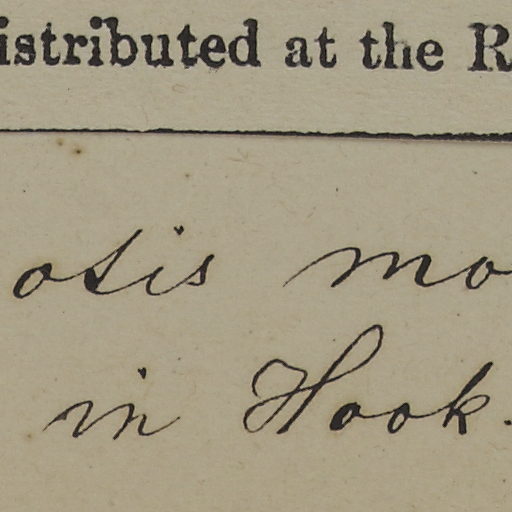 istributed at the R
osis mo
in Hook.